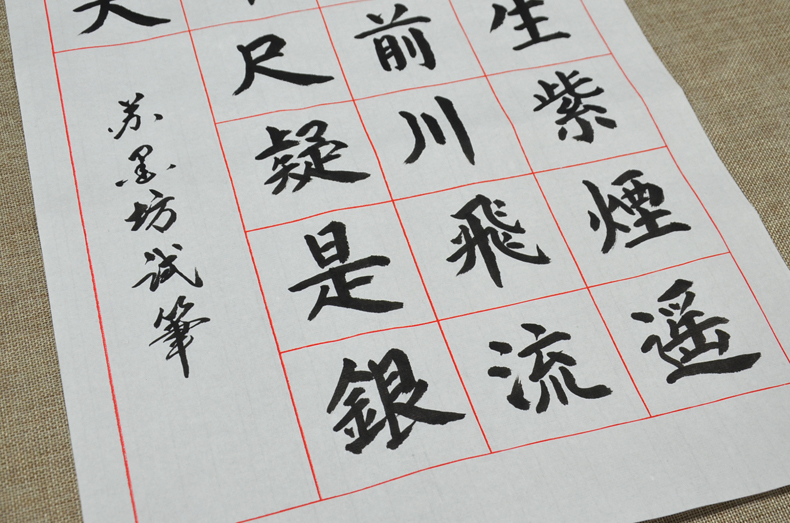 生紫煙遥
前川飛流
尺疑是銀
天
苏墨坊试筆